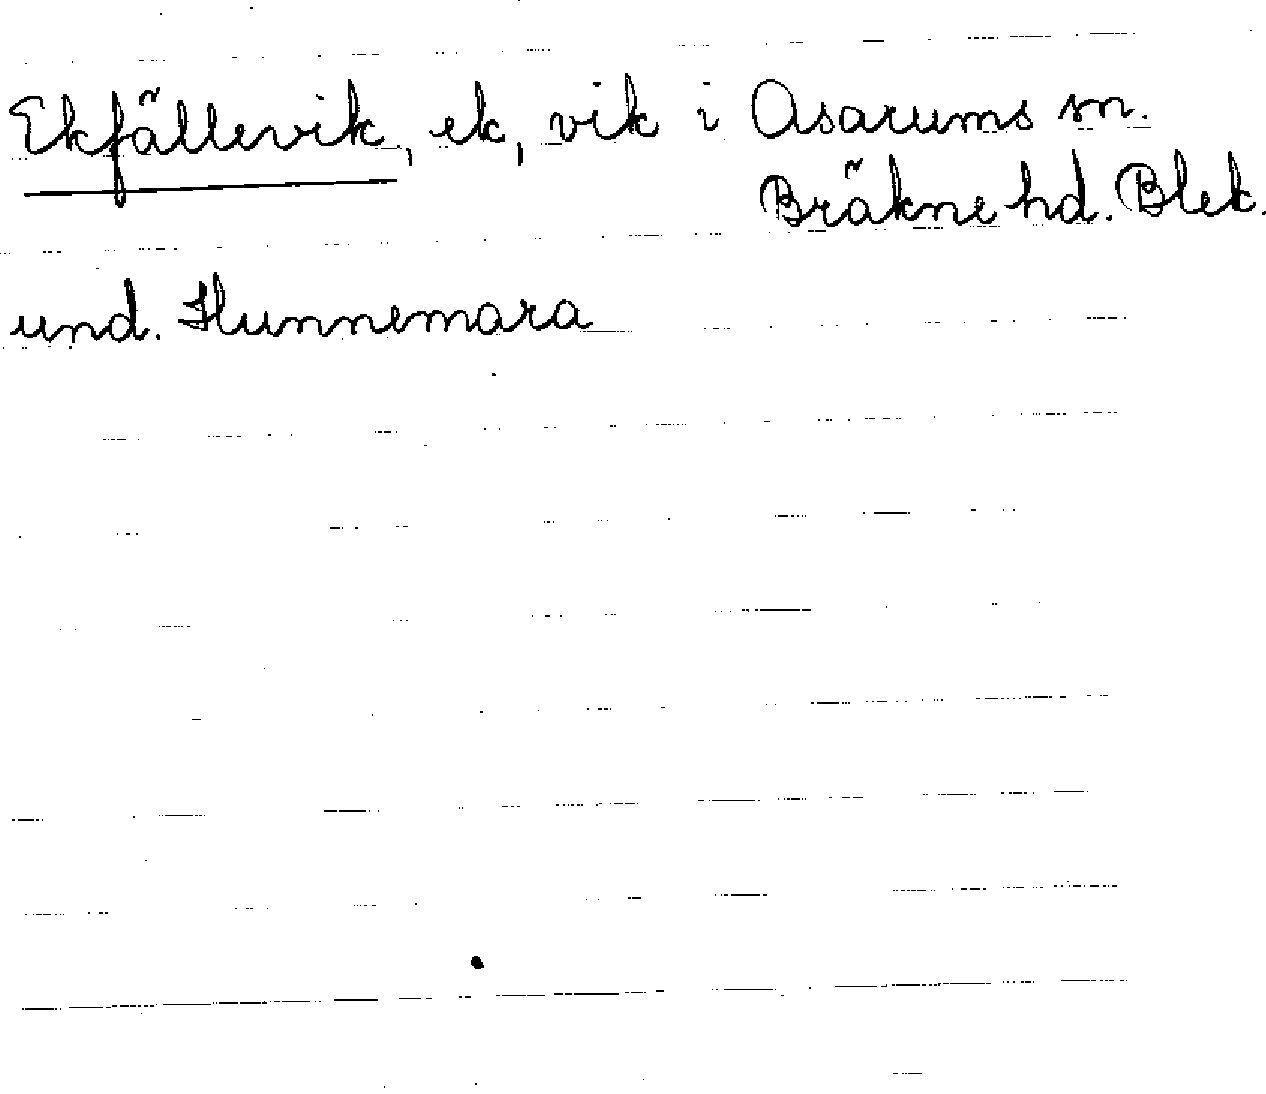 Ekfällevik, ek, vik i Asarums sn.
Bräkne hd. Blek.
und. Hunnemara